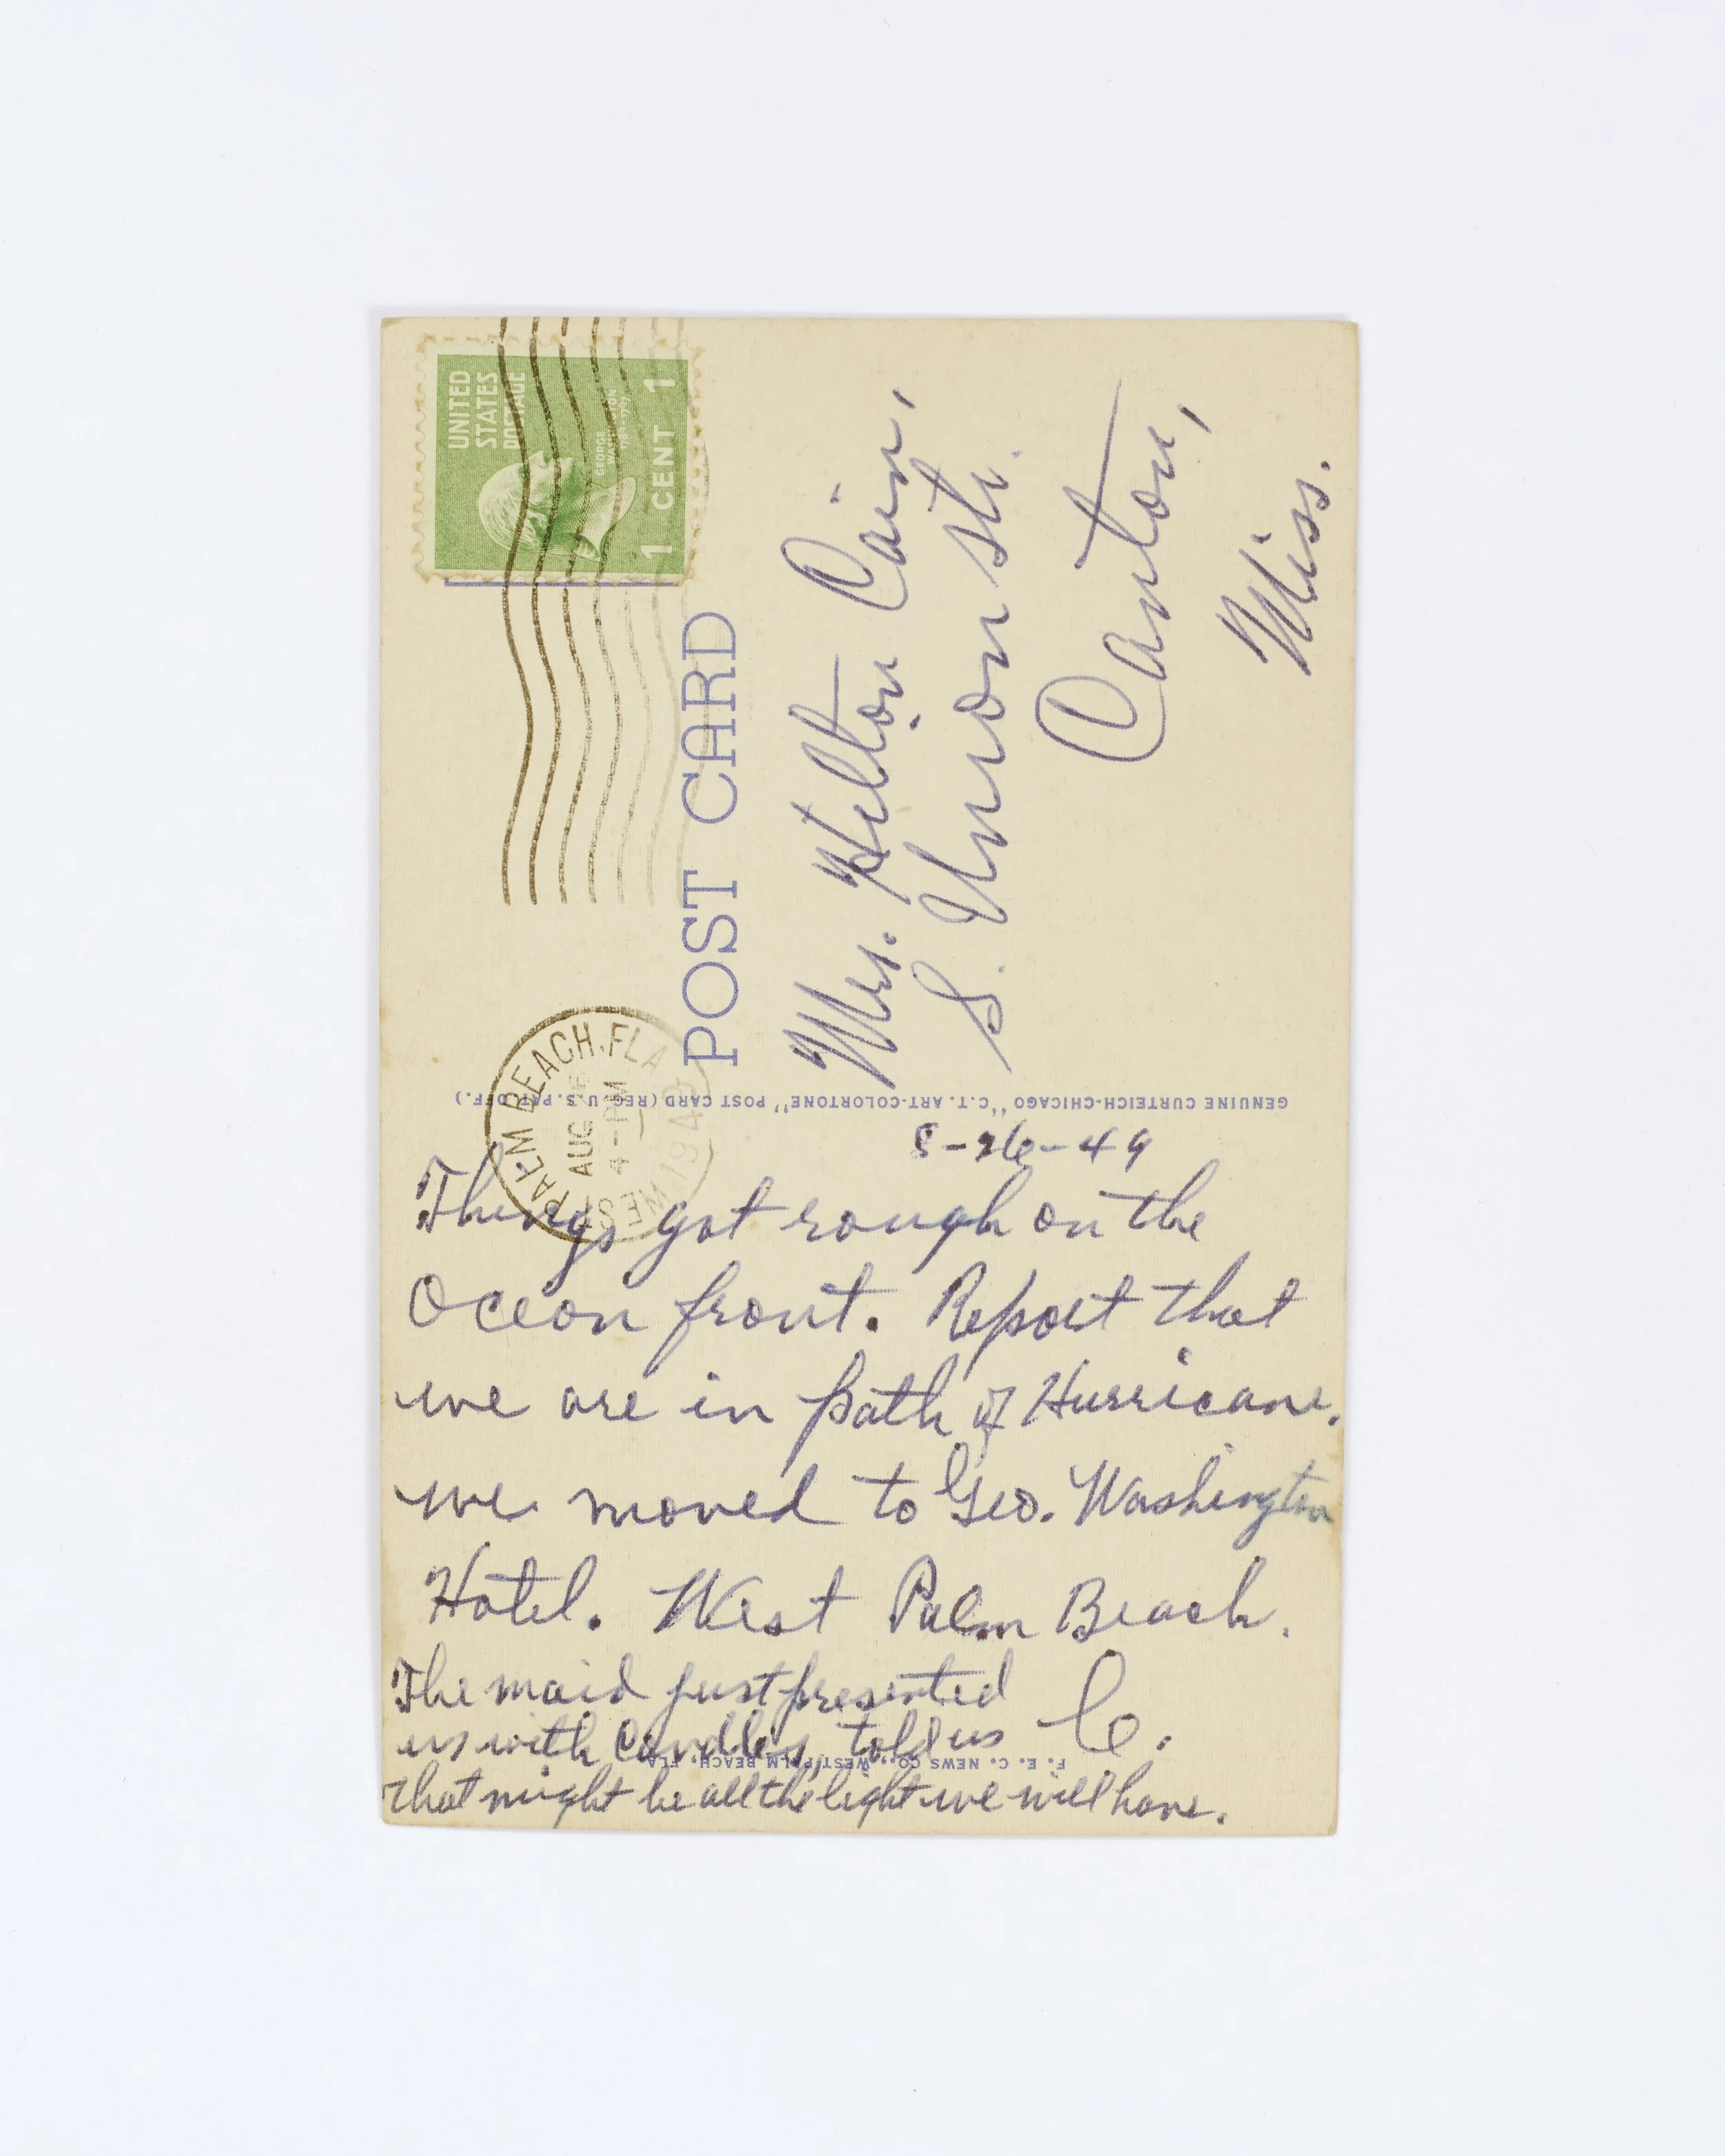 UNITED
STATES
POSTAGE
GEORGE
WASHINGTON
1 CENT 1
PALM BEACH, FLA
WEST
AUG
4 - PM
1949
POST CARD
Mrs. Hilton Cain,
S. Union St.
Canton,
Miss.
GENUINE CURTEICH-CHICAGO "C.T. ART-COLORTONE" POST CARD (REG. U.S. PAT. OFF.)
8-26-49
Things got rough on the
Ocean front. Report that
we are in path of Hurricane.
we moved to Geo. Washington
Hotel. West Palm Beach.
The maid just presented
us with Candles, told us
that might be all the light we will have.
C.
F. E. C. NEWS CO., WEST PALM BEACH, FLA.